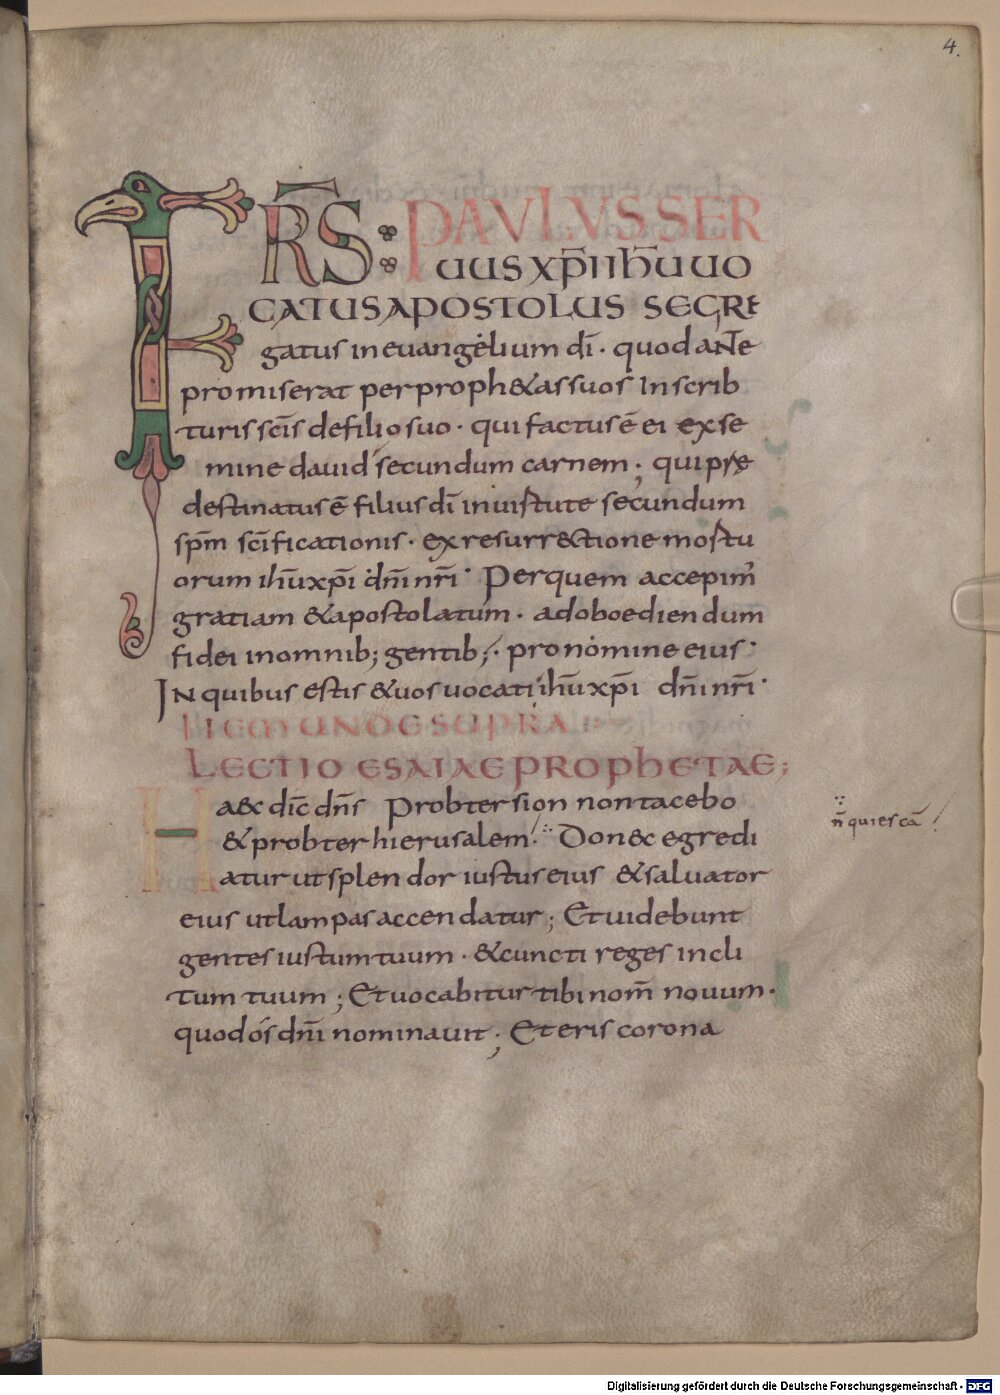 4.
FRS: PAULUS SER
UUS XP̄I IH̄U UO
CATUS APOSTOLUS SEGRE
gatus in euangelium dī · quod ante
promiserat per proph&as suos In scrib
turis sc̄is de filio suo · qui factus ē ei ex se
mine dauid secundum carnem ; qui prę
destinatus ē filius dī in uirtute secundum
sp̄m sc̄ificationis · ex resurr&ctione mortu
orum ih̄u xp̄i dn̄i nr̄i · Per quem accepim'
gratiam & apostolatum · ad oboediendum
fidei in omnib; gentib; · pro nomine eius ·
IN quibus estis & uos uocati ih̄u xp̄i dn̄i nr̄i ·
ITEM UNDE SUPRA
LECTIO ESAIAE PROPHETAE;
Haec dic̄ dn̄s Probter sion non tacebo
& probter hierusalem · Donec egredi
atur ut splendor iustus eius & saluator
n̄ quiescā
eius ut lampas accendatur ; Et uidebunt
gentes iustum tuum · & cuncti reges incli
tum tuum ; Et uocabitur tibi nom̄ nouum ·
quod ós dn̄i nominauit ; Et eris corona
Digitalisierung gefördert durch die Deutsche Forschungsgemeinschaft - DFG